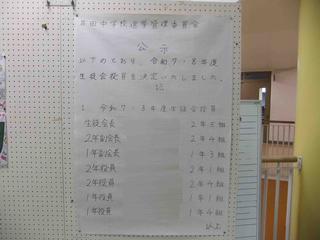 田中学校選挙管理委員会
公示
以下のとおり、令和7・8年度
生徒会役員を決定いたしました。
記
1 令和7・8年度生徒会役員
生徒会長 2年3組
2年副会長 2年4組
1年副会長 1年3組
2年役員 2年1組
2年役員 2年4組
1年役員 1年1組
1年役員 1年4組
以上